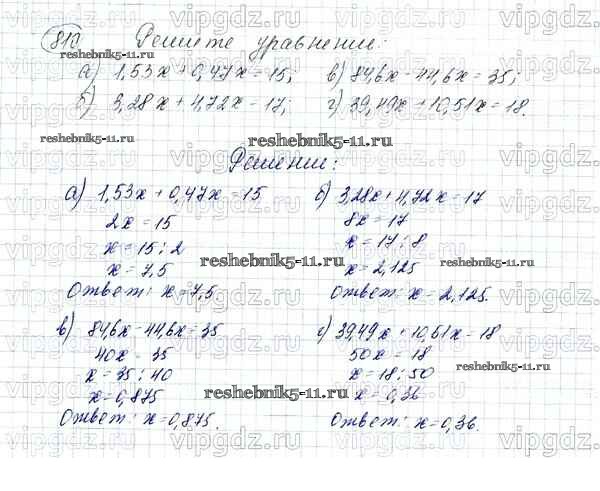 810 Решите уравнение:
а) 1,53x + 0,47x = 15; в) 84,6x - 44,6x = 35;
б) 3,28x + 4,72x = 17; г) 39,49x + 10,51x = 18.
Решение:
а) 1,53x + 0,47x = 15
2x = 15
x = 15 : 2
x = 7,5
Ответ: x = 7,5
б) 3,28x + 4,72x = 17
8x = 17
x = 17 : 8
x = 2,125
Ответ: x = 2,125.
в) 84,6x - 44,6x = 35
40x = 35
x = 35 : 40
x = 0,875
Ответ: x = 0,875.
г) 39,49x + 10,51x = 18
50x = 18
x = 18 : 50
x = 0,36
Ответ: x = 0,36.
reshebnik5-11.ru
reshebnik5-11.ru
reshebnik5-11.ru
reshebnik5-11.ru
reshebnik5-11.ru
reshebnik5-11.ru
reshebnik5-11.ru
vipgdz.ru